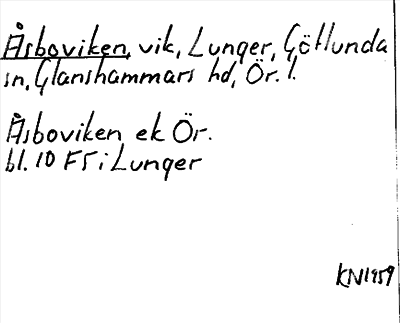 Åsboviken, vik, Lunger, Götlunda
sn, Glanshammars hd, Ör. l.
Åsboviken ek Ör.
bl. 10 F5 i Lunger
KN1959